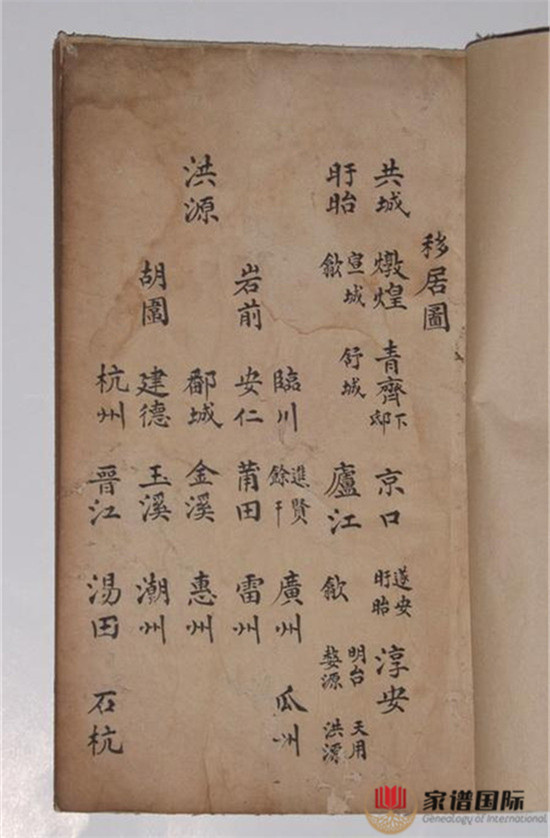 移居圖
共城 燉煌 青齊 下邸 京口 遂安 盱眙 淳安
盱眙 宣城 歙 舒城 廬江 歙 明台 婺源 天用 洪源
臨川 進賢 餘干 廣州 瓜州
岩前 安仁 莆田 雷州
洪源 鄱城 金溪 惠州
胡圍 建德 玉溪 潮州
杭州 晉江 湯田 石杭
家谱国际
Genealogy of International